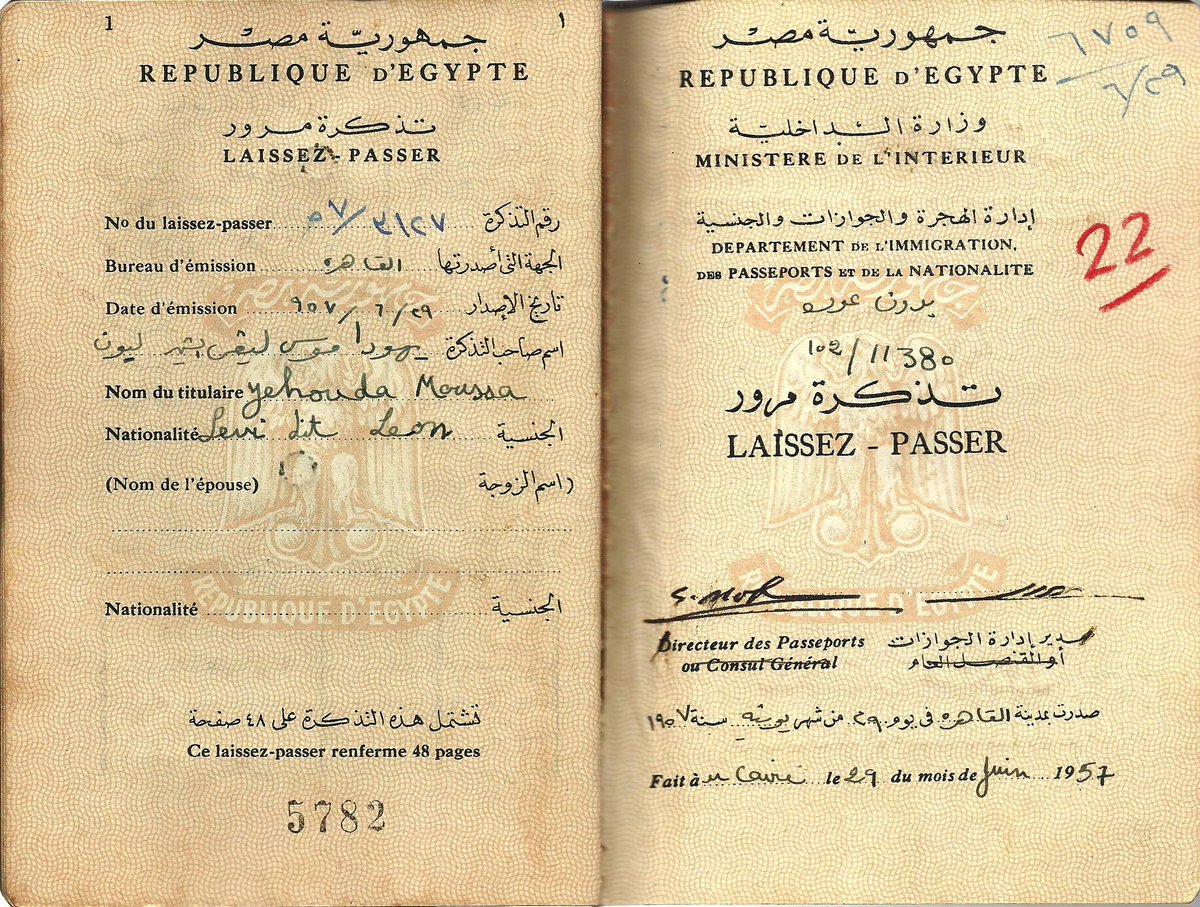 1 ١
جمهورية مصر
REPUBLIQUE D'EGYPTE
تذكرة مرور
LAISSEZ - PASSER
No du laissez-passer ٥٧/٣١٢٧ رقم التذكرة
Bureau d'émission القاهرة الجهة التى أصدرتها
Date d'émission ٩٥٧/٦/٢٩ تاريخ الإصدار
اسم صاحب التذكرة يهودا موسى ليفى بشهر ليون
Nom du titulaire Yehouda Moussa
Nationalité Levi dit Leon الجنسية
(Nom de l'épouse) (اسم الزوجة
Nationalité الجنسية
REPUBLIQUE D'EGYPTE
تشتمل هذه التذكرة على ٤٨ صفحة
Ce laissez-passer renferme 48 pages
5782
جمهورية مصر
REPUBLIQUE D'EGYPTE
٦٧٥٩
٦/٢٩
وزارة الداخلية
MINISTERE DE L'INTERIEUR
إدارة الهجرة والجوازات والجنسية
DEPARTEMENT DE L'IMMIGRATION,
DES PASSEPORTS ET DE LA NATIONALITE
22
بدون عودة
102/11380
تذكرة مرور
LAISSEZ - PASSER
REPUBLIQUE D'EGYPTE
Directeur des Passeports مدير إدارة الجوازات
ou Consul Général أو القنصل العام
صدرت بمدينة القاهرة فى يوم ٢٩ من شهر يونيه سنة ١٩٥٧
Fait à Caire le 29 du mois de Juin 1957